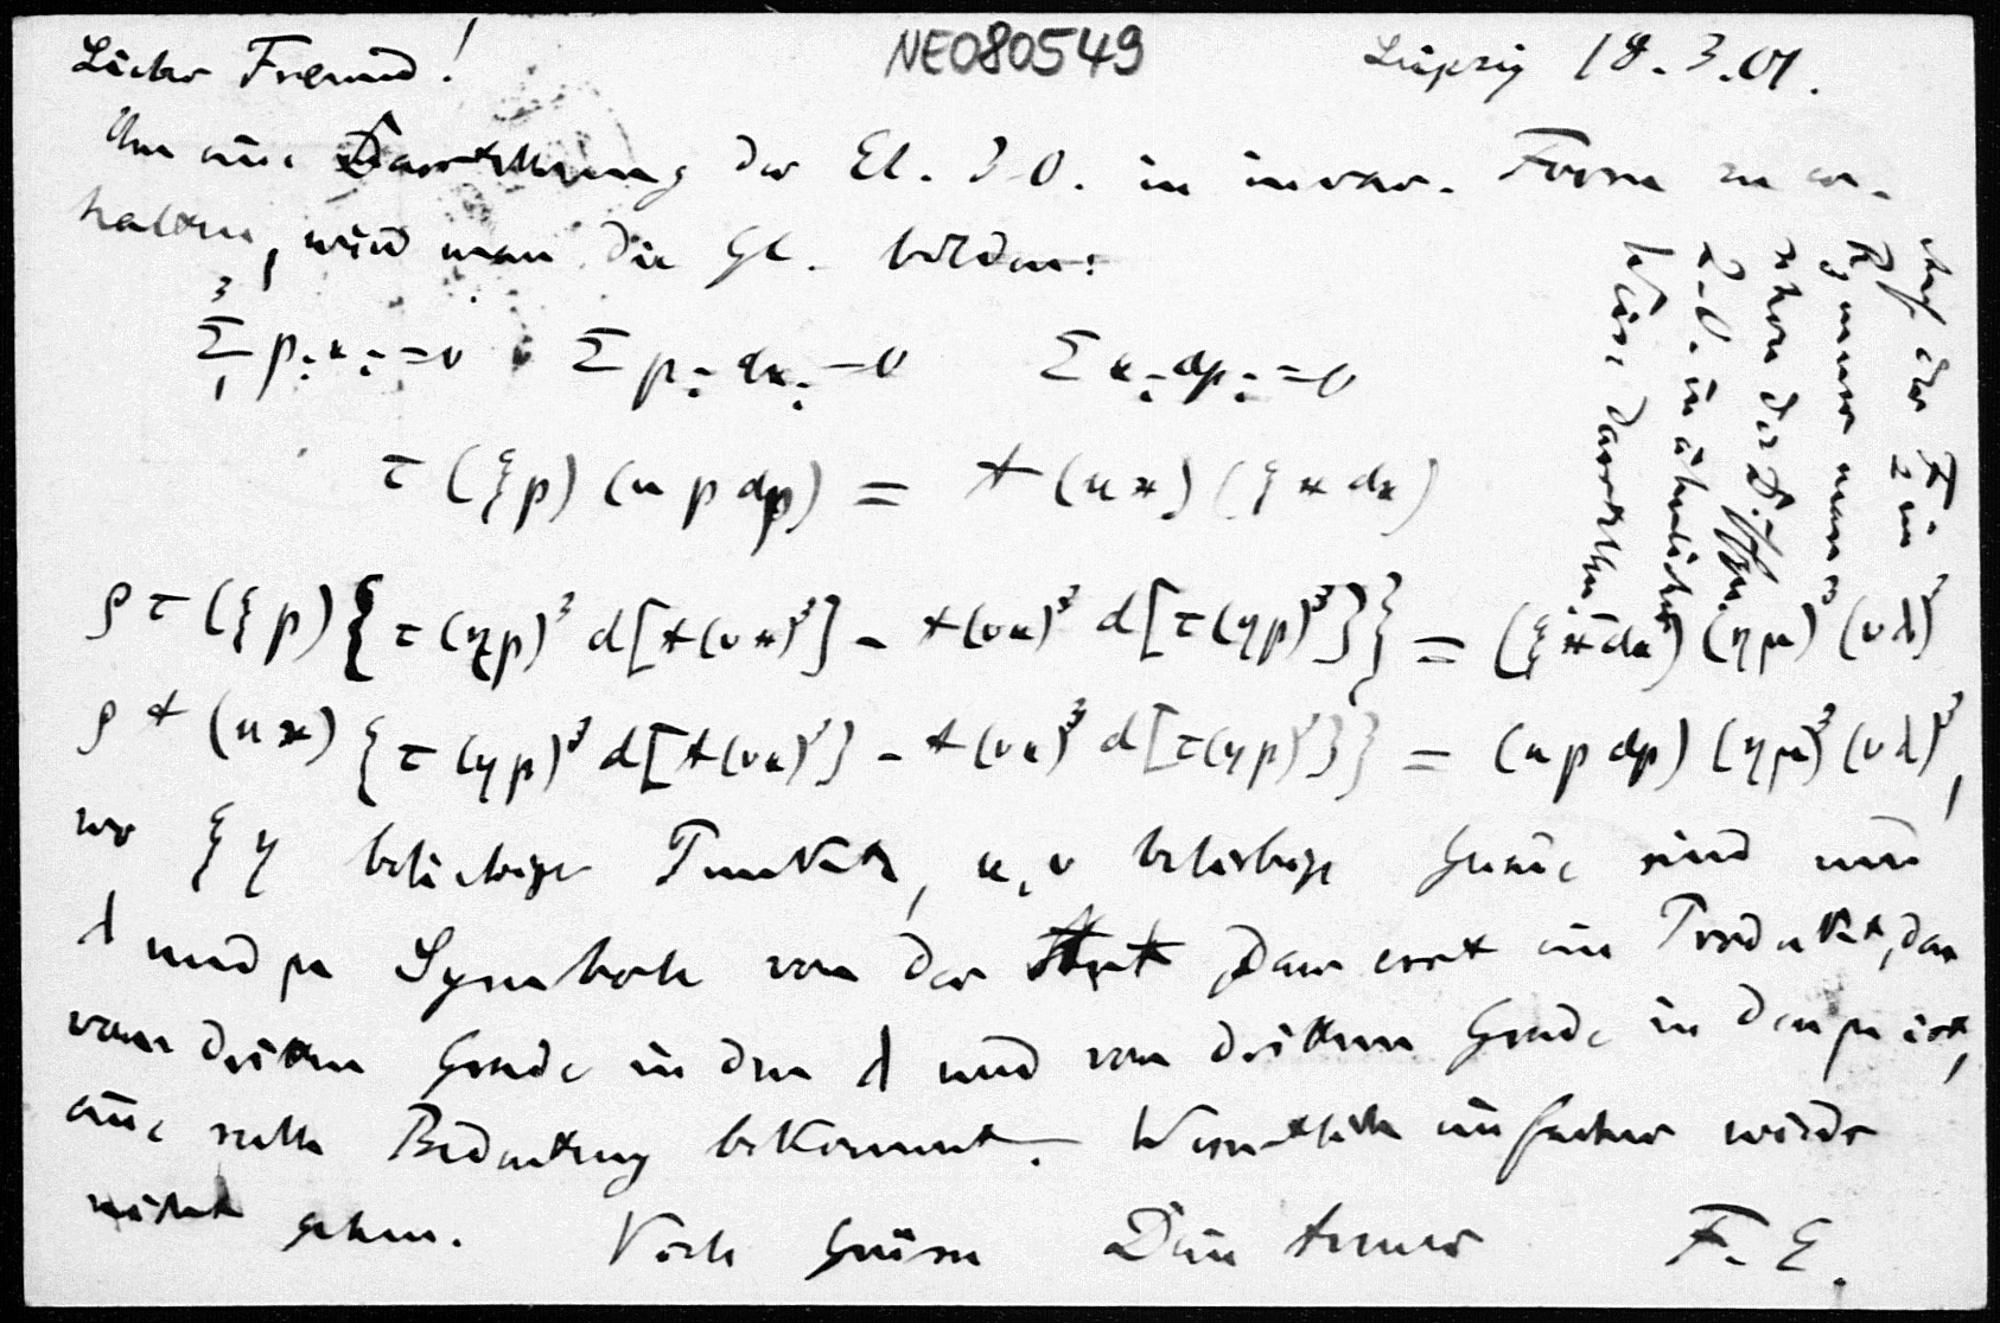 NE080549
Lieber Freund! Leipzig 18.3.01.
Um eine Darstellung der El. 3 O. in invar. Form zu er-
halten, wird man die Gl. bilden:
3 Σ 1 pᵢxᵢ=0 Σ pᵢ dxᵢ=0 Σ xᵢ dpᵢ=0
τ(ξp)(u p dp) = t(ux)(ξ x dx)
ρτ(ξp){τ(ηp)³ d[t(vx)³] - t(vx)³ d[τ(ηp)³]} = (ξxdx)(ημ)³(vλ)³
ρt(ux){τ(ηp)³ d[t(vx)³] - t(vx)³ d[τ(ηp)³]} = (u p dp)(ημ)³(vλ)³,
wo ξ η beliebige Punkte, u, v beliebige Gerade sind und
λ und μ Symbole von der Art, dass erst ein Produkt, das
vom dritten Grade in den λ und vom dritten Grade in den μ ist,
eine reelle Bedeutung bekommt. Wesentlich einfacher wirds
nicht gehen. Viele Grüsse Dein treuer F. E.
Auf der in
R₃ muss man
schon die
2. O. in ähnlicher
Weise darstellen.